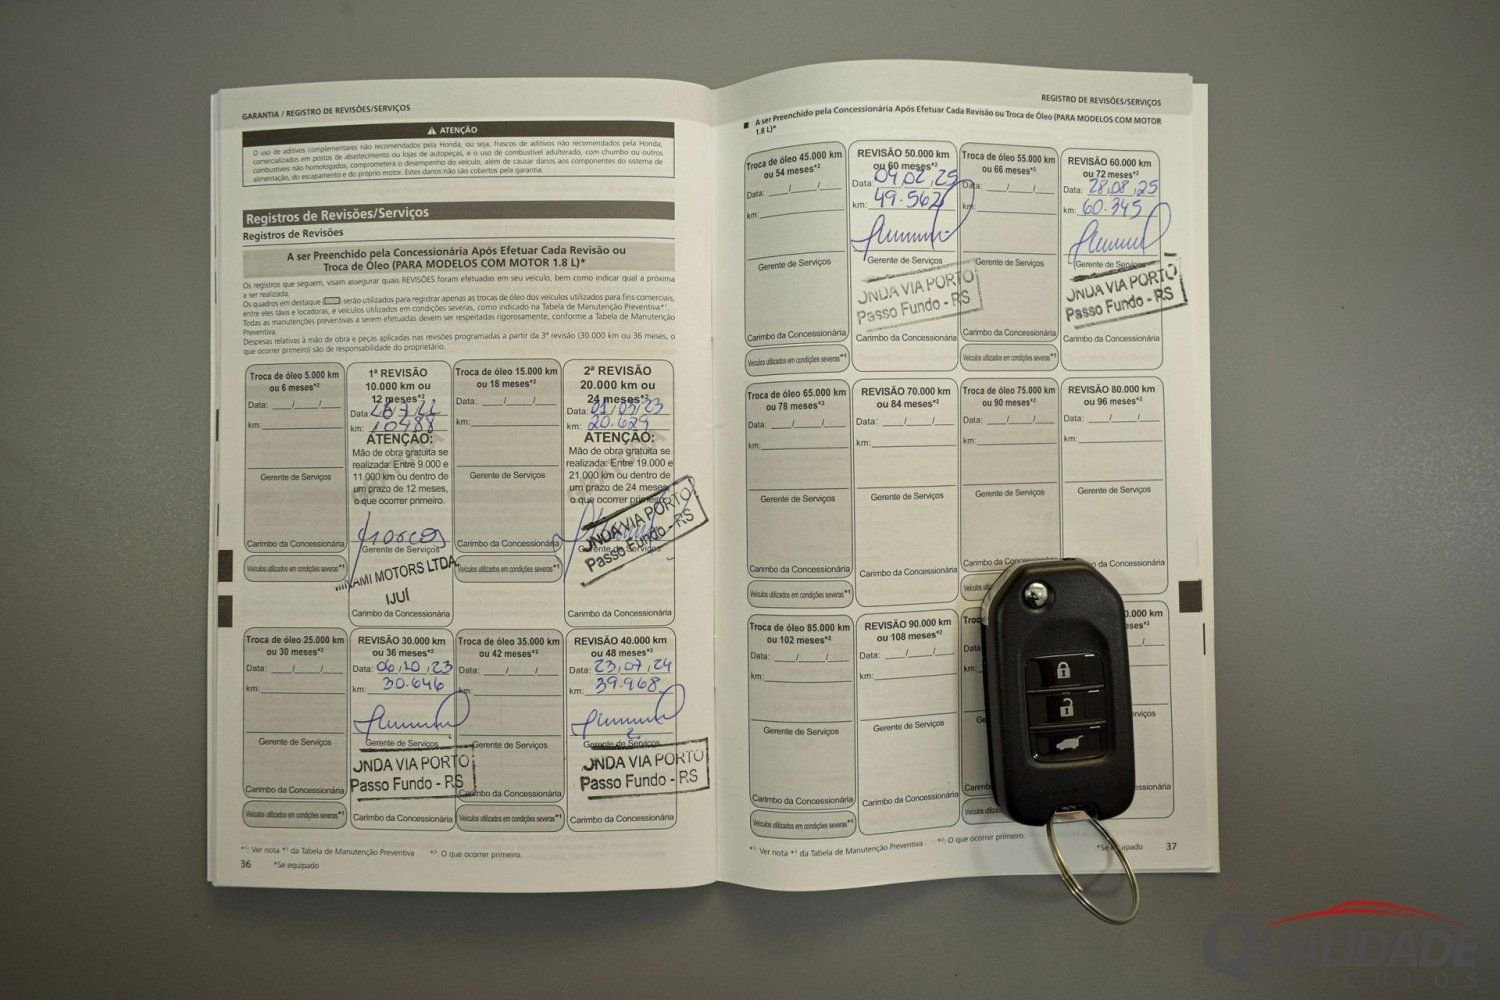 GARANTIA / REGISTRO DE REVISÕES/SERVIÇOS
ATENÇÃO
O uso de aditivos complementares não recomendados pela Honda, ou seja, frascos de aditivos não recomendados pela Honda,
comercializados em postos de abastecimento ou lojas de autopeças, e o uso de combustível adulterado, com chumbo ou outros
combustíveis não homologados, comprometerá o desempenho do veículo, além de causar danos aos componentes do sistema de
alimentação, do escapamento e do próprio motor. Estes danos não são cobertos pela garantia.
Registros de Revisões/Serviços
Registros de Revisões
A ser Preenchido pela Concessionária Após Efetuar Cada Revisão ou
Troca de Óleo (PARA MODELOS COM MOTOR 1.8 L)*
Os registros que seguem, visam assegurar quais REVISÕES foram efetuadas em seu veículo, bem como indicar qual a próxima
a ser realizada.
Os quadros em destaque ( ) serão utilizados para registrar apenas as trocas de óleo dos veículos utilizados para fins comerciais,
entre eles táxis e locadoras, e veículos utilizados em condições severas, como indicado na Tabela de Manutenção Preventiva*¹.
Todas as manutenções preventivas a serem efetuadas devem ser respeitadas rigorosamente, conforme a Tabela de Manutenção
Preventiva.
Despesas relativas à mão de obra e peças aplicadas nas revisões programadas a partir da 3ª revisão (30.000 km ou 36 meses, o
que ocorrer primeiro) são de responsabilidade do proprietário.
Troca de óleo 5.000 km
ou 6 meses*²
Data: ___/___/___
km:
Gerente de Serviços
Carimbo da Concessionária
Veículos utilizados em condições severas*¹
1ª REVISÃO
10.000 km ou
12 meses*²
Data:
km: 10488
ATENÇÃO:
Mão de obra gratuita se
realizada: Entre 9.000 e
11.000 km ou dentro de
um prazo de 12 meses,
o que ocorrer primeiro.
Gerente de Serviços
AMI MOTORS LTDA
IJUÍ
Carimbo da Concessionária
Troca de óleo 15.000 km
ou 18 meses*²
Data: ___/___/___
km:
Gerente de Serviços
Carimbo da Concessionária
Veículos utilizados em condições severas*¹
2ª REVISÃO
20.000 km ou
24 meses*²
Data: 01/03/23
km: 20.629
ATENÇÃO:
Mão de obra gratuita se
realizada: Entre 19.000 e
21.000 km ou dentro de
um prazo de 24 meses,
o que ocorrer primeiro.
Gerente de Serviços
ONDA VIA PORTO
Passo Fundo - RS
Carimbo da Concessionária
Troca de óleo 25.000 km
ou 30 meses*²
Data: ___/___/___
km:
Gerente de Serviços
Carimbo da Concessionária
Veículos utilizados em condições severas*¹
REVISÃO 30.000 km
ou 36 meses*²
Data: 06/10/23
km: 30.646
Gerente de Serviços
ONDA VIA PORTO
Passo Fundo - RS
Carimbo da Concessionária
Troca de óleo 35.000 km
ou 42 meses*²
Data: ___/___/___
km:
Gerente de Serviços
Carimbo da Concessionária
Veículos utilizados em condições severas*¹
REVISÃO 40.000 km
ou 48 meses*²
Data: 23/07/24
km: 39.968
Gerente de Serviços
ONDA VIA PORTO
Passo Fundo - RS
Carimbo da Concessionária
*¹: Ver nota *¹ da Tabela de Manutenção Preventiva *²: O que ocorrer primeiro.
36 *Se equipado
REGISTRO DE REVISÕES/SERVIÇOS
A ser Preenchido pela Concessionária Após Efetuar Cada Revisão ou Troca de Óleo (PARA MODELOS COM MOTOR
1.8 L)*
Troca de óleo 45.000 km
ou 54 meses*²
Data: ___/___/___
km:
Gerente de Serviços
Carimbo da Concessionária
Veículos utilizados em condições severas*¹
REVISÃO 50.000 km
ou 60 meses*²
Data: 04/02/25
km: 49.562
Gerente de Serviços
ONDA VIA PORTO
Passo Fundo - RS
Carimbo da Concessionária
Troca de óleo 55.000 km
ou 66 meses*²
Data: ___/___/___
km:
Gerente de Serviços
Carimbo da Concessionária
Veículos utilizados em condições severas*¹
REVISÃO 60.000 km
ou 72 meses*²
Data: 28/08/25
km: 60.345
Gerente de Serviços
ONDA VIA PORTO
Passo Fundo - RS
Carimbo da Concessionária
Troca de óleo 65.000 km
ou 78 meses*²
Data: ___/___/___
km:
Gerente de Serviços
Carimbo da Concessionária
Veículos utilizados em condições severas*¹
REVISÃO 70.000 km
ou 84 meses*²
Data: ___/___/___
km:
Gerente de Serviços
Carimbo da Concessionária
Troca de óleo 75.000 km
ou 90 meses*²
Data: ___/___/___
km:
Gerente de Serviços
Carimbo da
REVISÃO 80.000 km
ou 96 meses*²
Data: ___/___/___
km:
Gerente de Serviços
Carimbo da Concessionária
Troca de óleo 85.000 km
ou 102 meses*²
Data: ___/___/___
km:
Gerente de Serviços
Carimbo da Concessionária
Veículos utilizados em condições severas*¹
REVISÃO 90.000 km
ou 108 meses*²
Data: ___/___/___
km:
Gerente de Serviços
Carimbo da Concessionária
*¹: Ver nota *¹ da Tabela de Manutenção Preventiva *²: O que ocorrer primeiro.
37
QUALIDADE